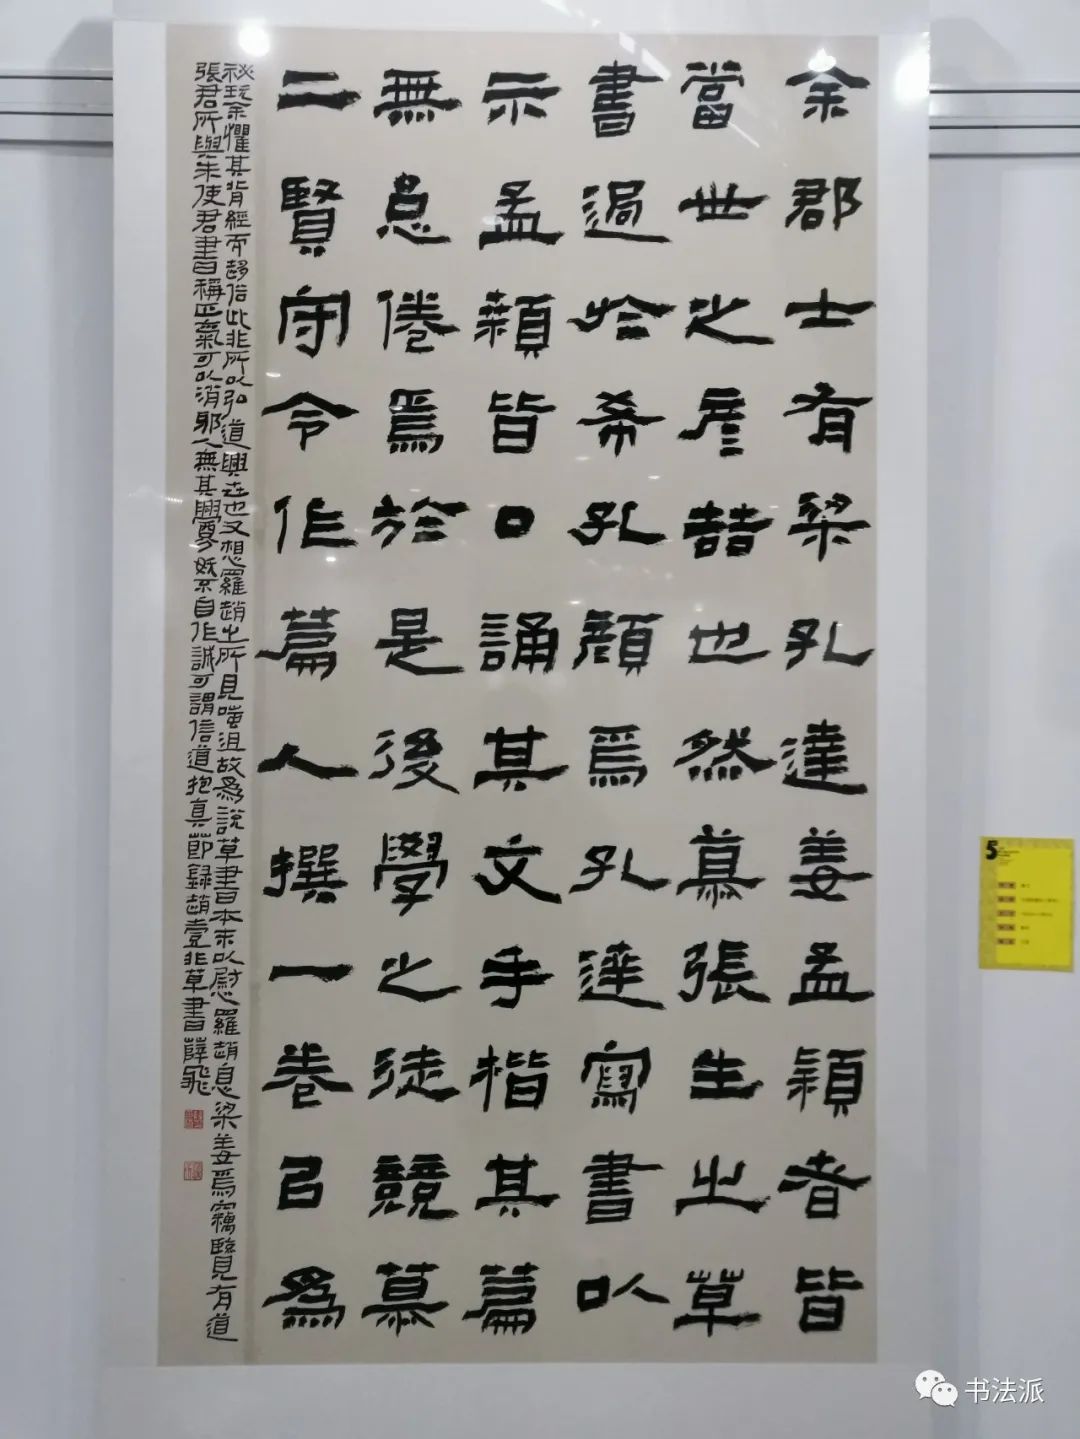 余郡士有梁孔達姜孟穎者皆
當世之彦喆也然慕張生之草
書過於希孔顔焉孔達寫書以
示孟穎皆口誦其文手楷其篇
無怠倦焉於是後學之徒競慕
二賢守令作篇人撰一卷以為
秘玩余懼其背經而趍俗此非所以弘道興世也又想羅趙之所見嗤沮故為説草書本末以慰羅趙息梁姜焉竊覽有道
張君所與朱使君書稱正氣可以消邪人無其舋妖不自作誠可謂信道抱真節錄趙壹非草書薛飛
5
书法派